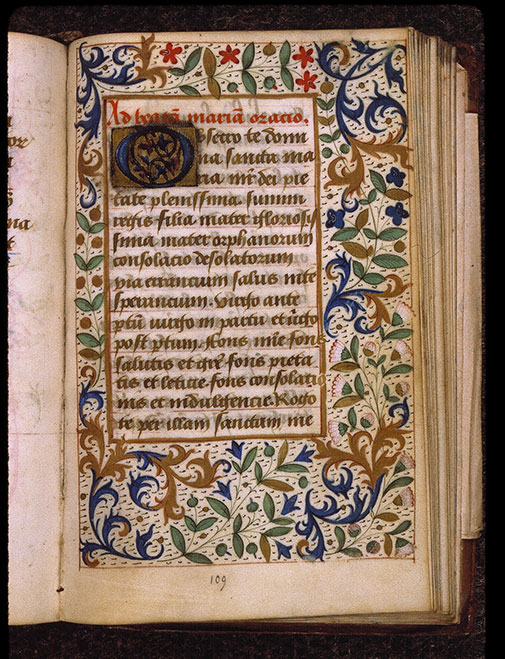 Ad beatā mariam oracio.
Obsecro te domi
na sancta ma
ria mr̄ dei pie
tate plenissima summi
regis filia mater gloriosis
sima mater orphanorum
consolacio desolatorum
via errancium salus in te
sperancium. Virgo ante
ptū virgo in partu et virgo
post ptum. Fons mīe fons
salutis et grē fons pieta
tis et leticie. fons consolacio
nis et indulgencie. Rogo
te per illam sanctam īne
109